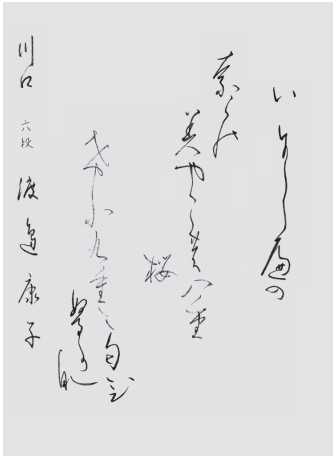 いにしへの
奈らの
美やこの八重
桜
けふ九重に匂ひ
ぬる可那
川口 六段 渡邉康子